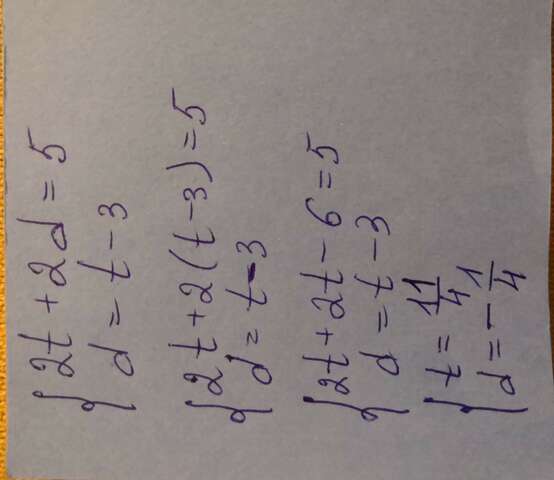 {2t+2d=5
d=t-3
{2t+2(t-3)=5
d=t-3
{2t+2t-6=5
d=t-3
{t=11/4
d=-1/4